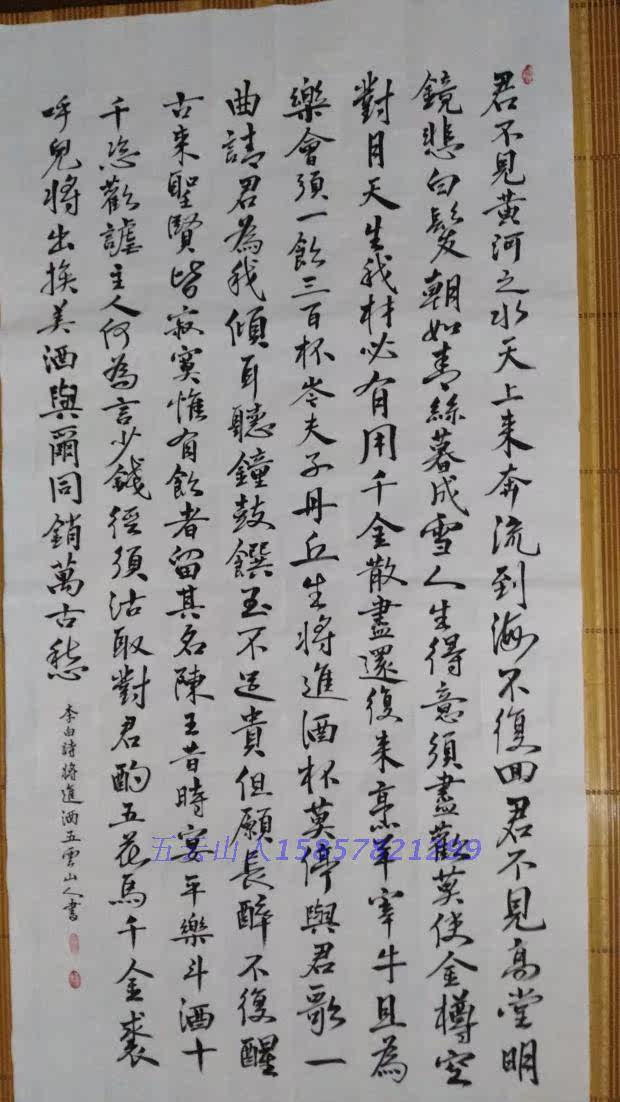 君不見黃河之水天上来奔流到海不復回君不見高堂明
鏡悲白髮朝如青絲暮成雪人生得意須盡歡莫使金樽空
對月天生我材必有用千金散盡還復来烹羊宰牛且為
樂會須一飲三百杯岑夫子丹丘生將進酒杯莫停與君歌一
曲請君為我傾耳聽鐘鼓饌玉不足貴但願長醉不復醒
古来聖賢皆寂寞惟有飲者留其名陳王昔時宴平樂斗酒十
千恣歡謔主人何為言少錢徑須沽取對君酌五花馬千金裘
呼兒將出換美酒與爾同銷萬古愁
李白詩將進酒五雲山人書
五云山人15857821299